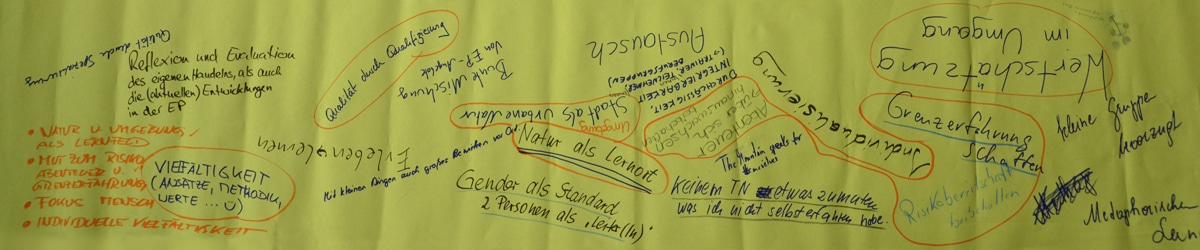 Qualität durch Spezialisierung
Reflexion und Evaluation
des eigenen Handelns, als auch
die (aktuellen) Entwicklungen
in der EP
• NATUR U UMGEBUNG /
ALS LERNFELD
• MUT ZUM RISIKO,
ABENTEUER U.
GRENZERFAHRUNG
• FOKUS MENSCH
• INDIVIDUELLE VIELFÄLTIGKEIT
VIELFÄLTIGKEIT
(ANSÄTZE, METHODIK,
WERTE ...)
Qualität durch Qualifizierung
Erleben → lernen
Bunte Mischung
von EP-
Mit kleinen Dingen auch großes Bewirken vor Ort
Austausch
DURCHLÄSSIGKEIT,
INTEGRIERBARKEIT
(→ TRAINER, TEILNEHMER,
BERUFSGRUPPEN)
Stadt als urbane Natur
Umgebung
Natur als Lernort
Gender als Standard
2 Personen als "Leiter(In)"
Abenteuer
über sich
hinauswachsen
Individualisierung
The Mountain speaks for
Keinem TN etwas zumuten
was ich nicht selbst erfahren habe.
Wertschätzung
im Umgang
Grenzerfahrung
schaffen
Risikobereitschaft
kleine Gruppe
bevorzugt
Metaphorisches